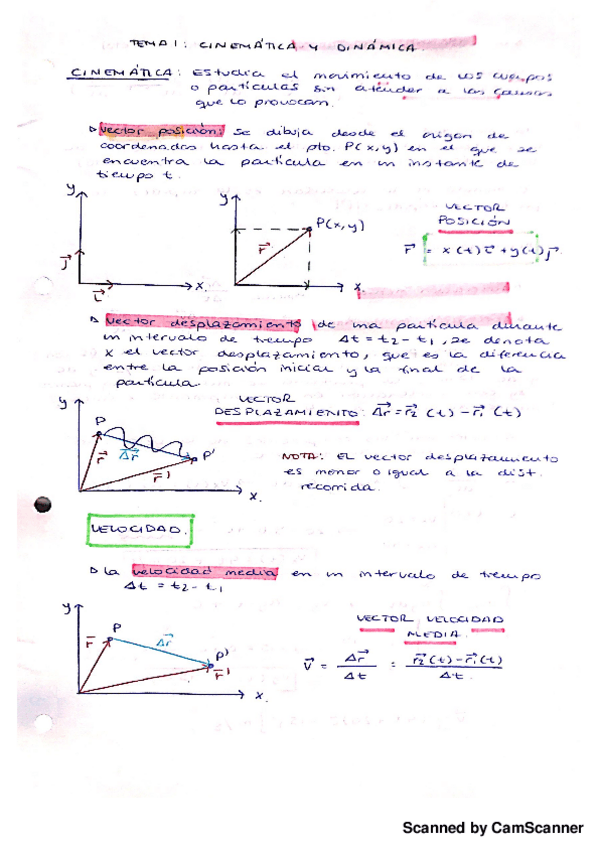 TEMA 1: CINEMÁTICA Y DINÁMICA.
CINEMÁTICA: Estudia el movimiento de los cuerpos
o partículas sin atender a las causas
que lo provocan.
▷ Vector posición: Se dibuja desde el origen de
coordenadas hasta el pto. P(x,y) en el que se
encuentra la partícula en un instante de
tiempo t.
y
j⃗
i⃗
x.
y
P(x,y)
r⃗
x.
VECTOR
POSICIÓN
r⃗ = x(t)i⃗ + y(t)j⃗
▷ Vector desplazamiento de una partícula durante
un intervalo de tiempo Δt = t₂ - t₁, se denota
x el vector desplazamiento, que es la diferencia
entre la posición inicial y la final de la
partícula.
VECTOR
DESPLAZAMIENTO: Δr⃗ = r⃗₂ (t) - r⃗₁ (t)
y
P
r⃗
Δr⃗
P'
r⃗'
x.
NOTA: El vector desplazamiento
es menor o igual a la dist.
recorrida.
VELOCIDAD.
▷ La velocidad media en un intervalo de tiempo
Δt = t₂ - t₁
y
P
r⃗
Δr⃗
P'
r⃗'
x.
VECTOR VELOCIDAD
MEDIA.
v⃗ = Δr⃗ / Δt = r⃗₂(t) - r⃗₁(t) / Δt.
Scanned by CamScanner